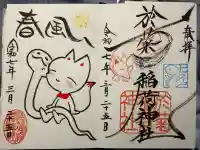 奉拝
於菊
稲荷神社
令和七年三月二十五日
春風
令和七年三月
二十五日